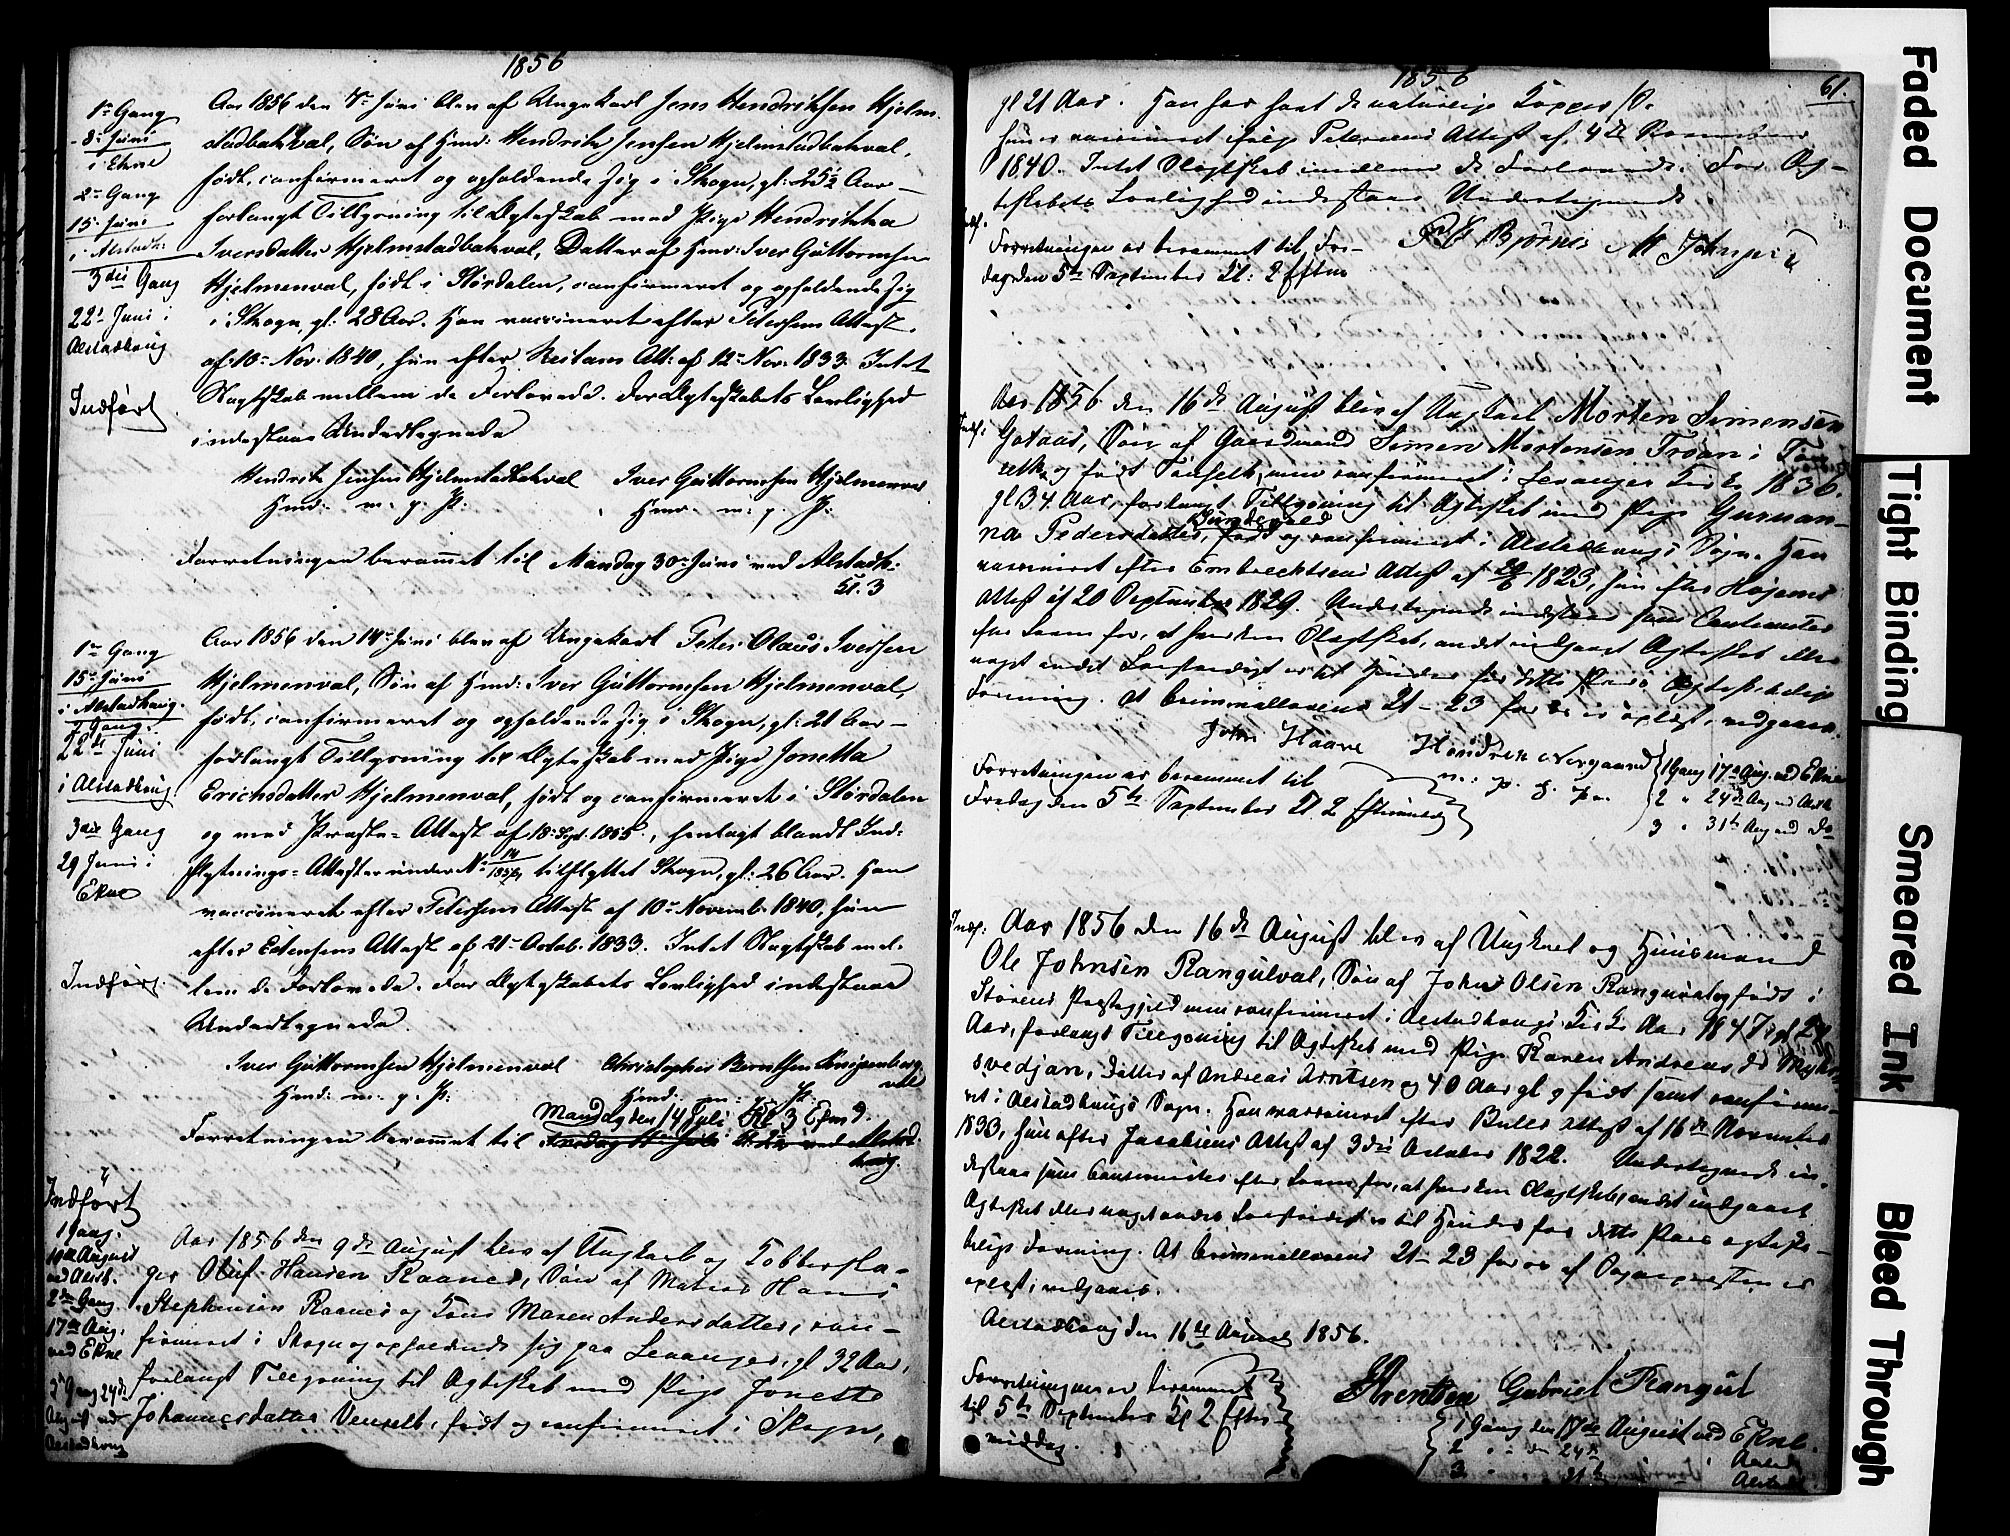 1856
1ste Gang
8de Juni
i Ekne
2den Gang
15 Juni
i Alstadh:
3die Gang
22de Juni i
Alstadhaug
Indført
Aar 1856 den 7de Juni blev af Ungekarl Jens Hendriksen Hjelm-
stadbakval, Søn af Hmd: Hendrik Jensen Hjelmstadbakval,
født, confirmeret og opholdende sig i Skogn, gl: 25½ Aar –
forlangt Tillysning til Ægteskab med Pige Hendrikka
Iversdatter Hjelmstadbakval, Datter af Hmd: Iver Guttormsen
Hjelmenval, født i Størdalen, confirmeret og opholdende sig
i Skogn, gl: 28 Aar. Han vaccineret efter Petersens Attest
af 10de Nov. 1840, hun efter Att: af 12te Nov. 1833. Intet
Slagtskab mellem de Forlovede. For Ægteskabets Lovlighed
indestaae Undertegnede
Hendrik Jensen Hjelmstadbakval   Iver Guttormsen Hjelmenval
Hmd: m. p. P:   Hmd. m. p. P:
Forretningen berammet til Mandag 30te Juni ved Alstadh:
Kl. 3
1ste Gang
15de Juni
i Alstadhaug.
2 Gang
22de Juni
i Alstadhaug
3die Gang
29 Juni i
Ekne
Indført
Aar 1856 den 14de Juni blev af Ungekarl Peter Olaus Iversen
Hjelmenval, Søn af Hmd: Iver Guttormsen Hjelmenval,
født, confirmeret og opholdende sig i Skogn, gl: 21 Aar –
forlangt Tillysning til Ægteskab med Pige Jonetta
Erichsdatter Hjelmenval, født og confirmeret i Størdalen
og med Præste-Attest af 18 Sept. 1855, henlagt blandt Ind-
flytnings-Attester under No tilflyttet Skogn, gl: 26 Aar. Han
vaccineret efter Petersens Attest af 10de Novemb. 1840, hun
efter Attest af 21de Octob. 1833. Intet Slagtskab mel-
lem de Forlovede. For Ægteskabets Lovlighed indestaae
Undertegnede.
Iver Guttormsen Hjelmenval   Christopher Berntsen
Hmd: m. p. P:   Hmd: m. p. P:
Mandag den 14 Juli Kl 3 Efmd.
Forretningen berammet til   Alstad-
haug.
Indført
1 Gang.
10de August
ved Alsth.
2den Gang
17de Aug.
ved Ekne
3die Gang 24de
August ved
Alstadhaug
Aar 1856 den 9de August blev af Ungkarl og Kobbersla-
ger Oluf Hansen Raanes, Søn af Matros Hans
Stephensen Raanes og Kone Maren Andersdatter, con-
firmeret i Skogn og opholdende sig paa Levanger, gl 32 Aar,
forlangt Tillysning til Ægteskab med Pige Jonette
Johannesdatter, født og confirmeret i Skogn,
1856
61.
gl 21 Aar. Han har havt de naturlige Kopper,
hun er vaccineret ifølge Petersens Attest af 4de
1840. Intet Slagtskab imellem de Forlovede. For Æg-
teskabets Lovlighed indestaae Undertegnede
Indf.
Forretningen er berammet til Fre-
dag den 5te September Kl: 2 Eftm
Indf:
Aar 1856 den 16de August blev af Ungkarl Morten Simensen
Gotaas, Søn af Gaardmand Simen Mortensen Troan i
og født, men confirmeret i Levanger Kirke 1836.
gl 34 Aar, forlangt Tillysning til Ægteskab med Pige Gurian-
na Pedersdatter, født og confirmeret i Alstadhaugs Sogn. Han
vaccineret efter Embrechtsens Attest af 1823, hun efter Højems
Attest af 20 September 1829. Undertegnede indestaae som Cautionister
for, at hverken Slagtskab, andet indgaaet Ægteskab eller
noget andet Lovstridigt er til Hinder for dette Pars ægteskabelige
Forening. At Criminallovens 21–23 for os er oplæst, vedgaaes.
John Haave   Hendrik Norgaard
m. p. P.
1 Gang 17de Aug. ved Ekne
2 " 24de Aug ved Alsth
3 " 31te Aug ved do
Forretningen er berammet til
Fredag den 5te September Kl. 2 Eftermiddag
Indf:
Aar 1856 den 16de August blev af Ungkarl og Huusmand
Ole Johnsen Rangulval, Søn af John Olsen Rangulval, født i
Størens Præstegjeld men confirmeret i Alstadhaugs Kirke Aar 1847
Aar, forlangt Tillysning til Ægteskab med Pige Karen Andreasdr
svedjan, Datter af Andreas Arntsen og 40 Aar gl, født samt confirme-
ret i Alstadhaugs Sogn. Han vaccineret efter Bulls Attest af 16de November
1833, hun efter Jacobsens Attest af 3die October 1822. Undertegnede in-
destaae som Cautionister for, at hverken Slagtskab, andet indgaaet
Ægteskab eller noget andet Lovstridigt er til Hinder for dette Pars ægteska-
belige Forening. At Criminallovens 21–23 for os af Sognepræsten er
oplæst, vedgaaes.
Alstadhaug den 16de August 1856.
Forretningen er berammet
til 5te September Kl 2 Efter-
middag.
Gabriel Rangul
1 Gang den 17de August ved Ekne.
2 " den 24de
3 " 31te
Alstadh